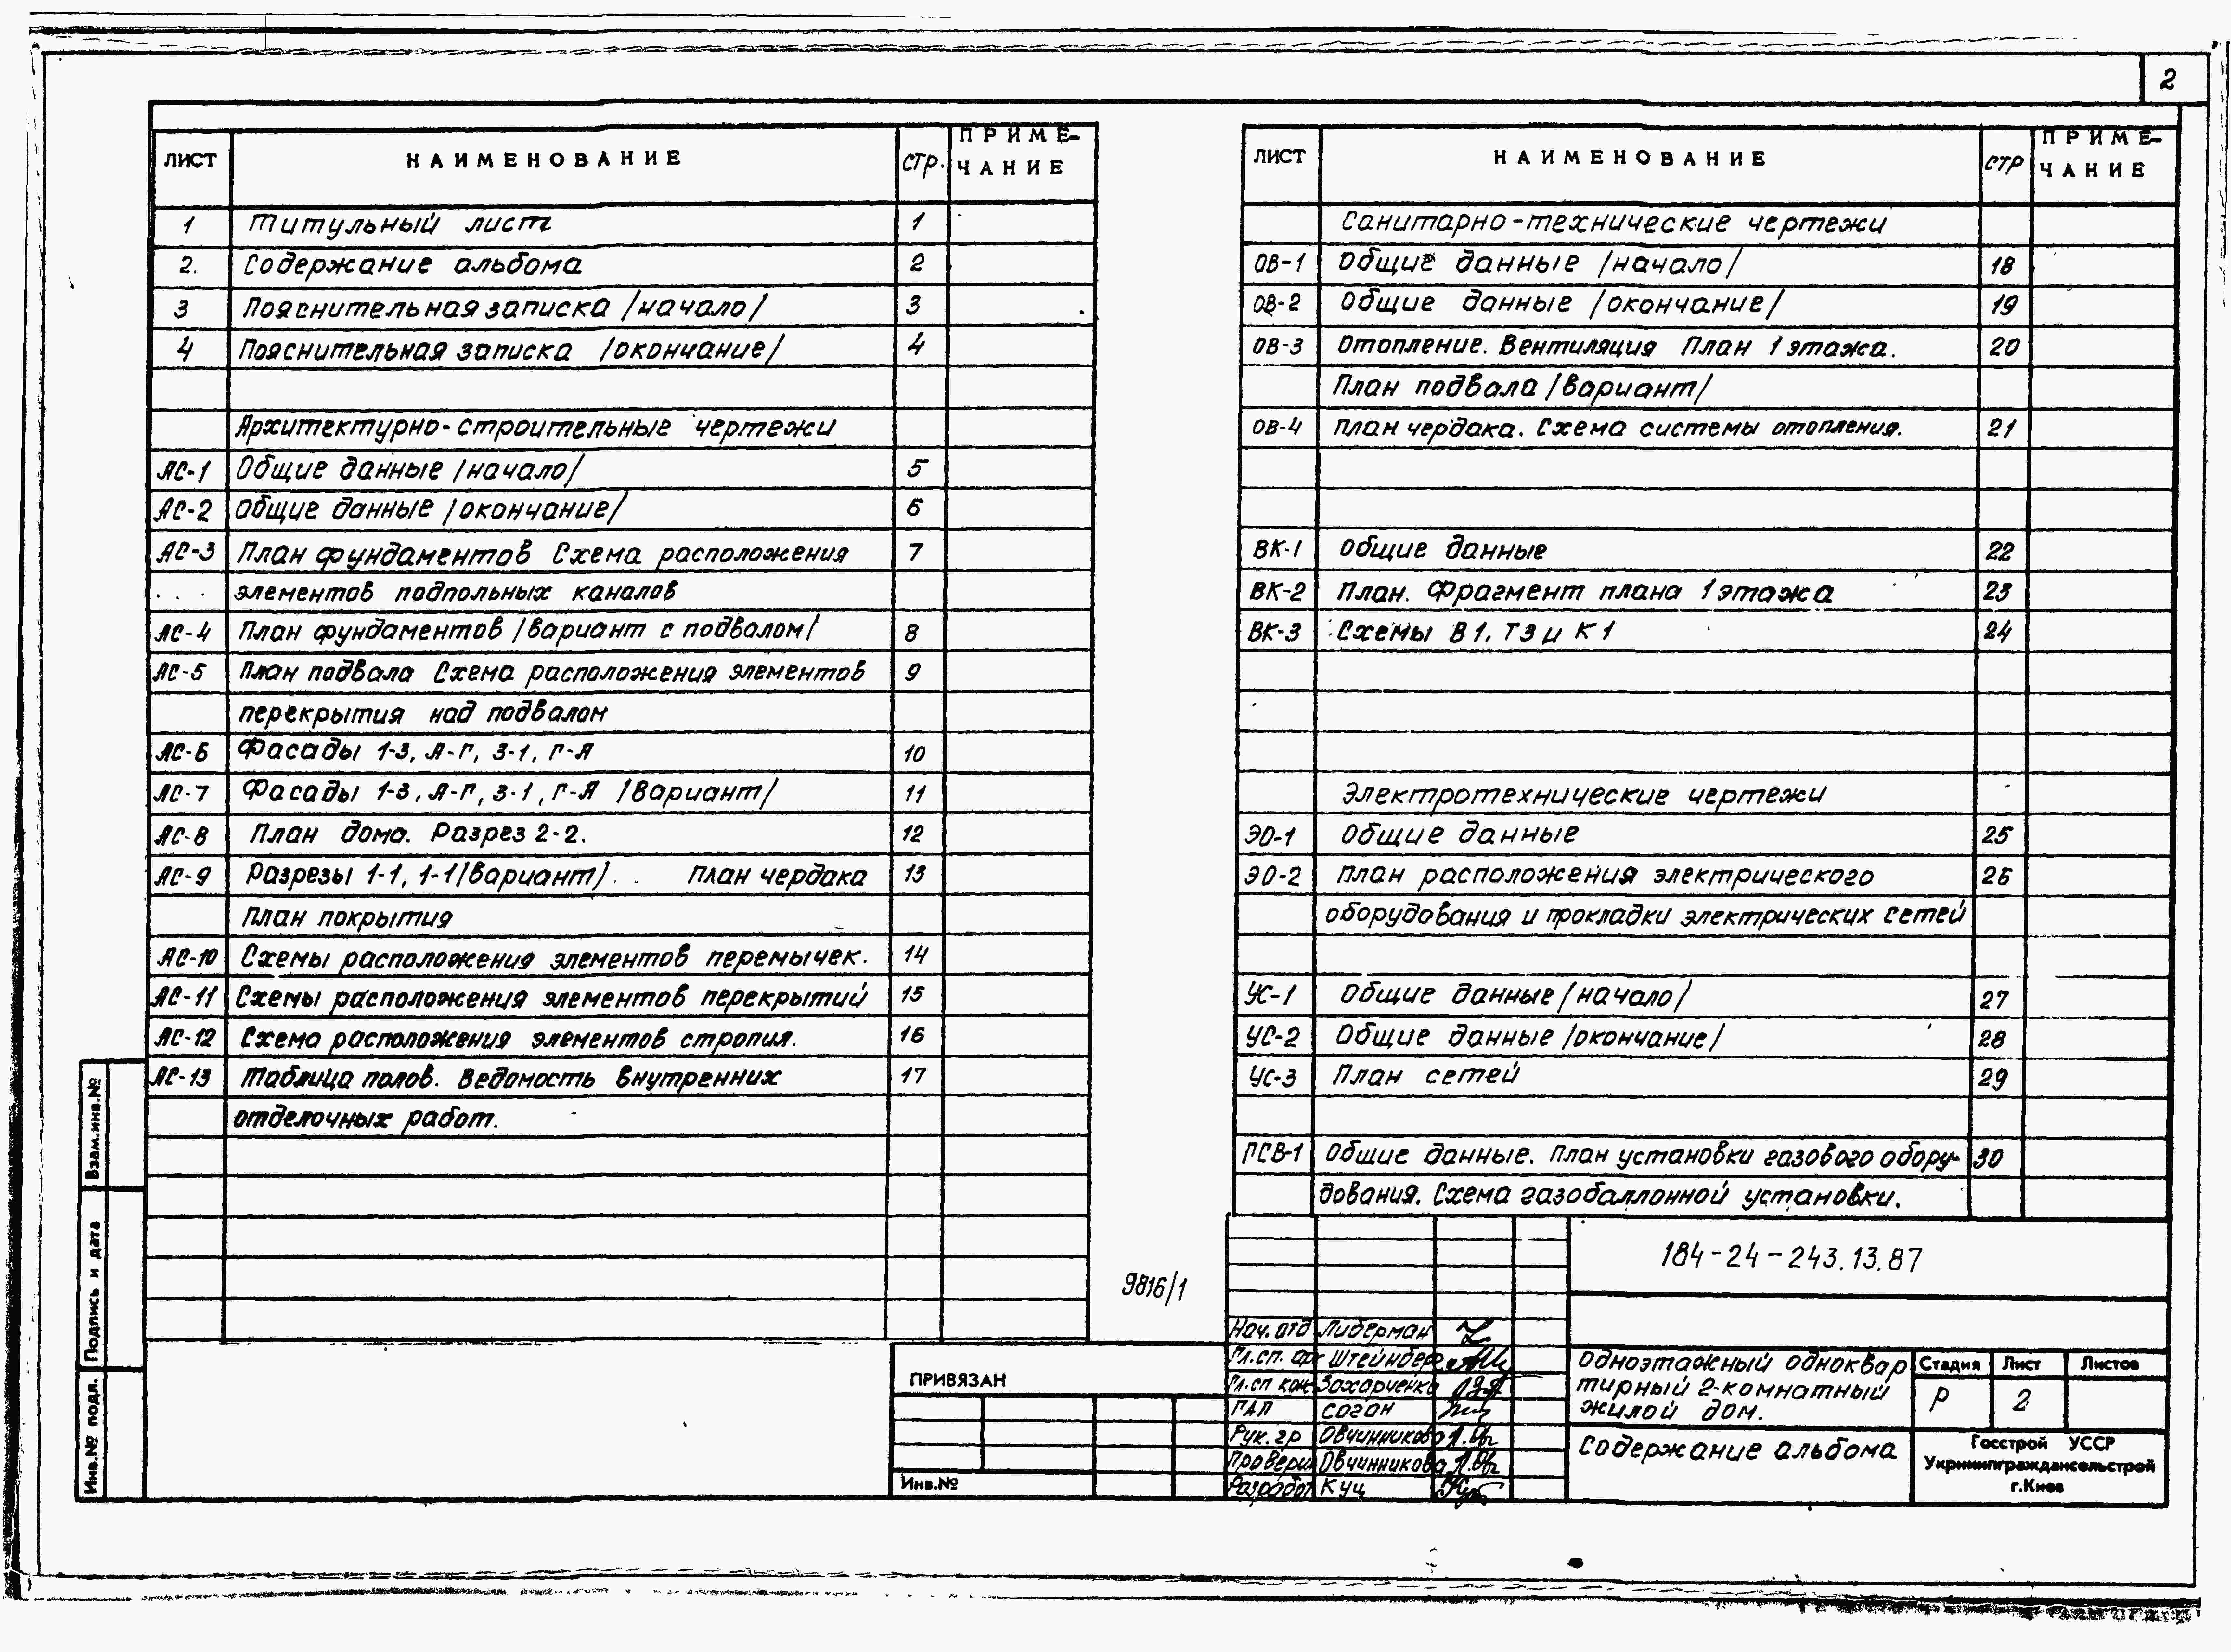 2
ЛИСТ НАИМЕНОВАНИЕ стр. ПРИМЕ-
ЧАНИЕ
1 Титульный лист 1
2. Содержание альбома 2
3 Пояснительная записка /начало/ 3
4 Пояснительная записка /окончание/ 4
Архитектурно-строительные чертежи
АС-1 Общие данные /начало/ 5
АС-2 Общие данные /окончание/ 6
АС-3 План фундаментов Схема расположения 7
элементов подпольных каналов
АС-4 План фундаментов /вариант с подвалом/ 8
АС-5 План подвала Схема расположения элементов 9
перекрытия над подвалом
АС-6 Фасады 1-3, А-Г, 3-1, Г-А 10
АС-7 Фасады 1-3, А-Г, 3-1, Г-А /Вариант/ 11
АС-8 План дома. Разрез 2-2. 12
АС-9 Разрезы 1-1, 1-1/вариант/. План чердака 13
План покрытия
АС-10 Схемы расположения элементов перемычек. 14
АС-11 Схемы расположения элементов перекрытий 15
АС-12 Схема расположения элементов стропил. 16
АС-13 Таблица полов. Ведомость внутренних 17
отделочных работ.
ЛИСТ НАИМЕНОВАНИЕ стр ПРИМЕ-
ЧАНИЕ
Санитарно-технические чертежи
ОВ-1 Общие данные /начало/ 18
ОВ-2 Общие данные /окончание/ 19
ОВ-3 Отопление. Вентиляция План 1 этажа. 20
План подвала /вариант/
ОВ-4 План чердака. Схема системы отопления. 21
ВК-1 Общие данные 22
ВК-2 План. Фрагмент плана 1 этажа 23
ВК-3 Схемы В1, Т3 и К1 24
Электротехнические чертежи
ЭО-1 Общие данные 25
ЭО-2 План расположения электрического 26
оборудования и прокладки электрических сетей
УС-1 Общие данные /начало/ 27
УС-2 Общие данные /окончание/ 28
УС-3 План сетей 29
ГСВ-1 Общие данные. План установки газового обору- 30
дования. Схема газобаллонной установки.
9816/1
184-24-243.13.87
Нач. отд Либерман
Гл. сп. арх Штейнберг
Гл. сп кон Захарченко
ГАП Соган
Рук. гр Овчинникова
Проверил Овчинникова
Разработ Куц
Одноэтажный одноквар
тирный 2-комнатный
жилой дом.
Стадия Лист Листов
Р 2
Содержание альбома
Госстрой УССР
Укрниипграждансельстрой
г.Киев
ПРИВЯЗАН
Инв.№
Взам.инв.№
Подпись и дата
Инв.№ подл.